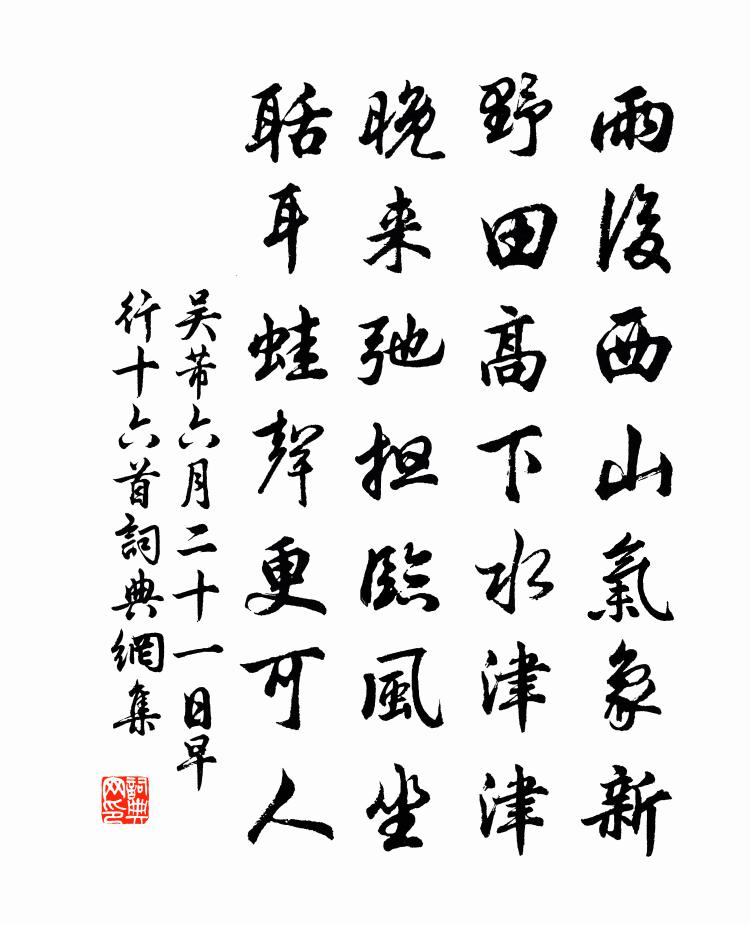 雨後西山氣象新
野田高下水津津
晚来弛担臨風坐
聒耳蛙聲更可人
吴芾六月二十一日早
行十六首詞典網集
詞典网印